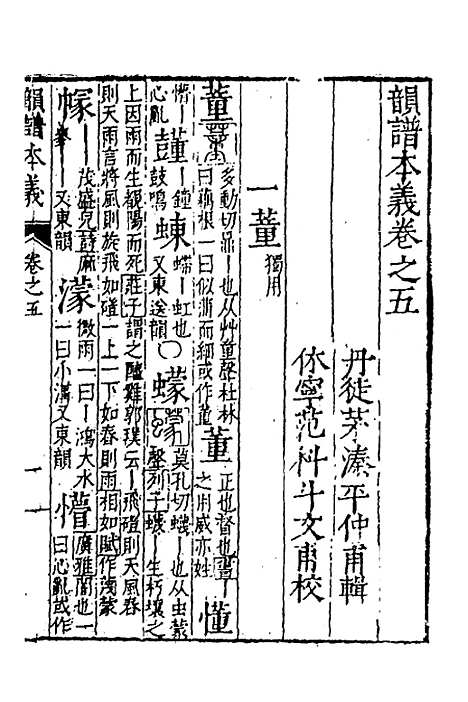 韻譜本義卷之五
丹徒茅溱平仲甫輯
休寧范科斗文甫校
一董獨用
董多動切鼎丨也从艸童聲杜林曰藕根一曰似浙而細或作蕫董正也督也書董之用威亦姓懂
懵丨心亂䵯丨鐘鼓鳴蝀螮丨虹也又東送韻〇蠓莫孔切蠛丨也从虫蒙聲列子蠛丨生朽壤之
上因雨而生覩陽而死莊子謂之醯雞郭璞云丨飛磑則天風舂
則天雨言將風則旋飛如磑一上一下如舂則雨相如賦作蔑蒙
幏丨丨茂盛皃詩麻麥丨丨又東韻濛微雨一曰丨鴻大水一曰小濛又東韻懵廣雅闇也一曰心亂或作
韻譜本義 卷之五 一